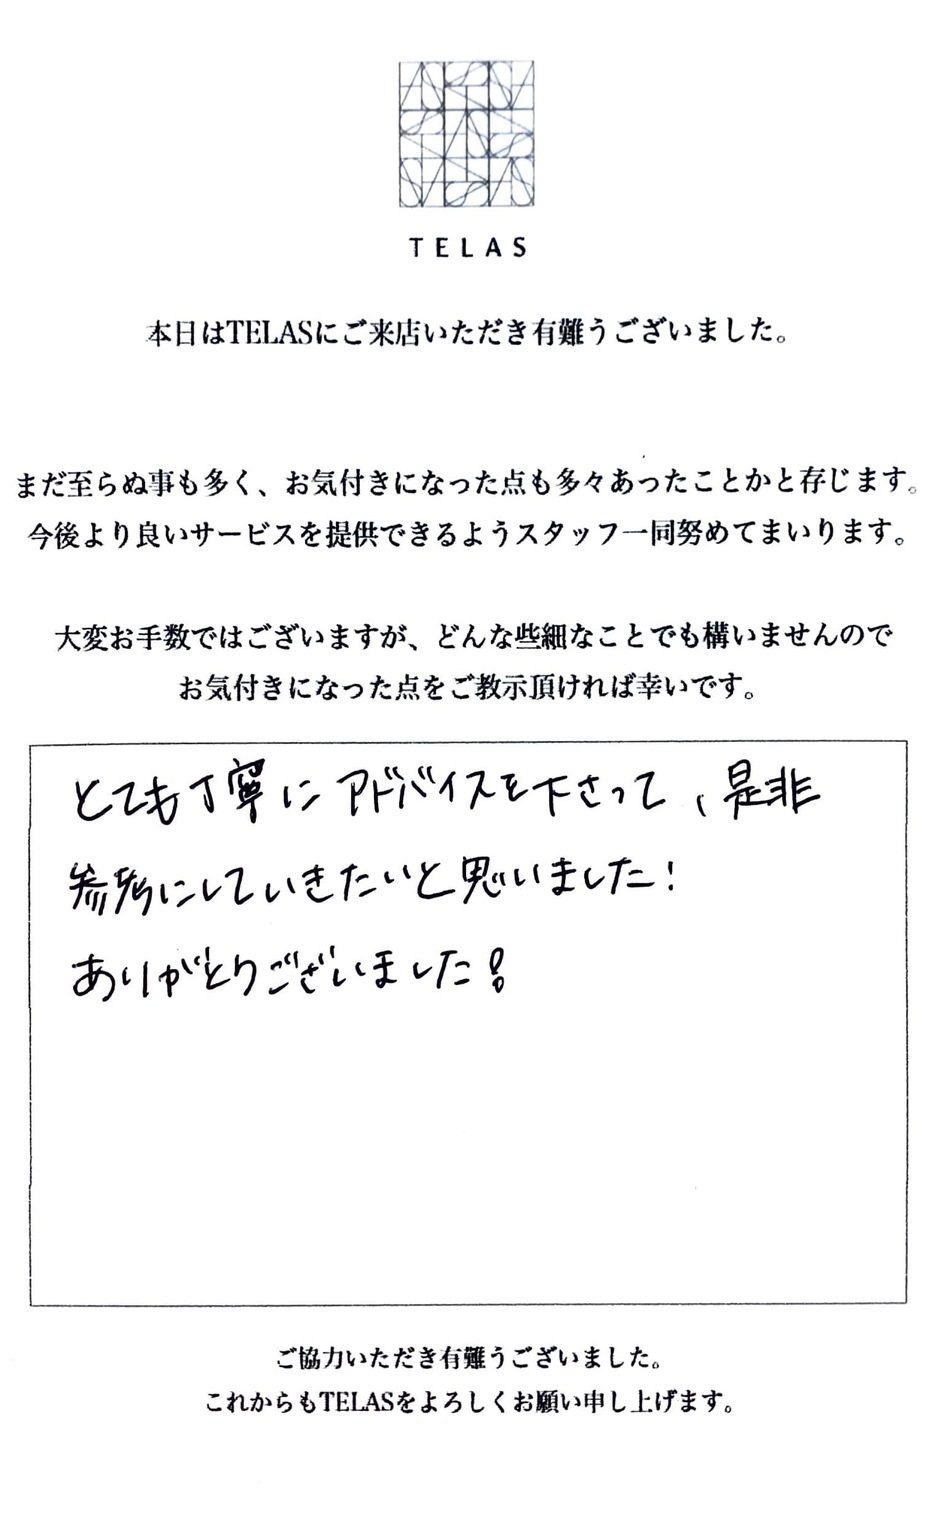 TELAS
本日はTELASにご来店いただき有難うございました。
まだ至らぬ事も多く、お気付きになった点も多々あったことかと存じます。
今後より良いサービスを提供できるようスタッフ一同努めてまいります。
大変お手数ではございますが、どんな些細なことでも構いませんので
お気付きになった点をご教示頂ければ幸いです。
とても丁寧にアドバイスを下さって、是非
参考にしていきたいと思いました!
ありがとうございました!
ご協力いただき有難うございました。
これからもTELASをよろしくお願い申し上げます。